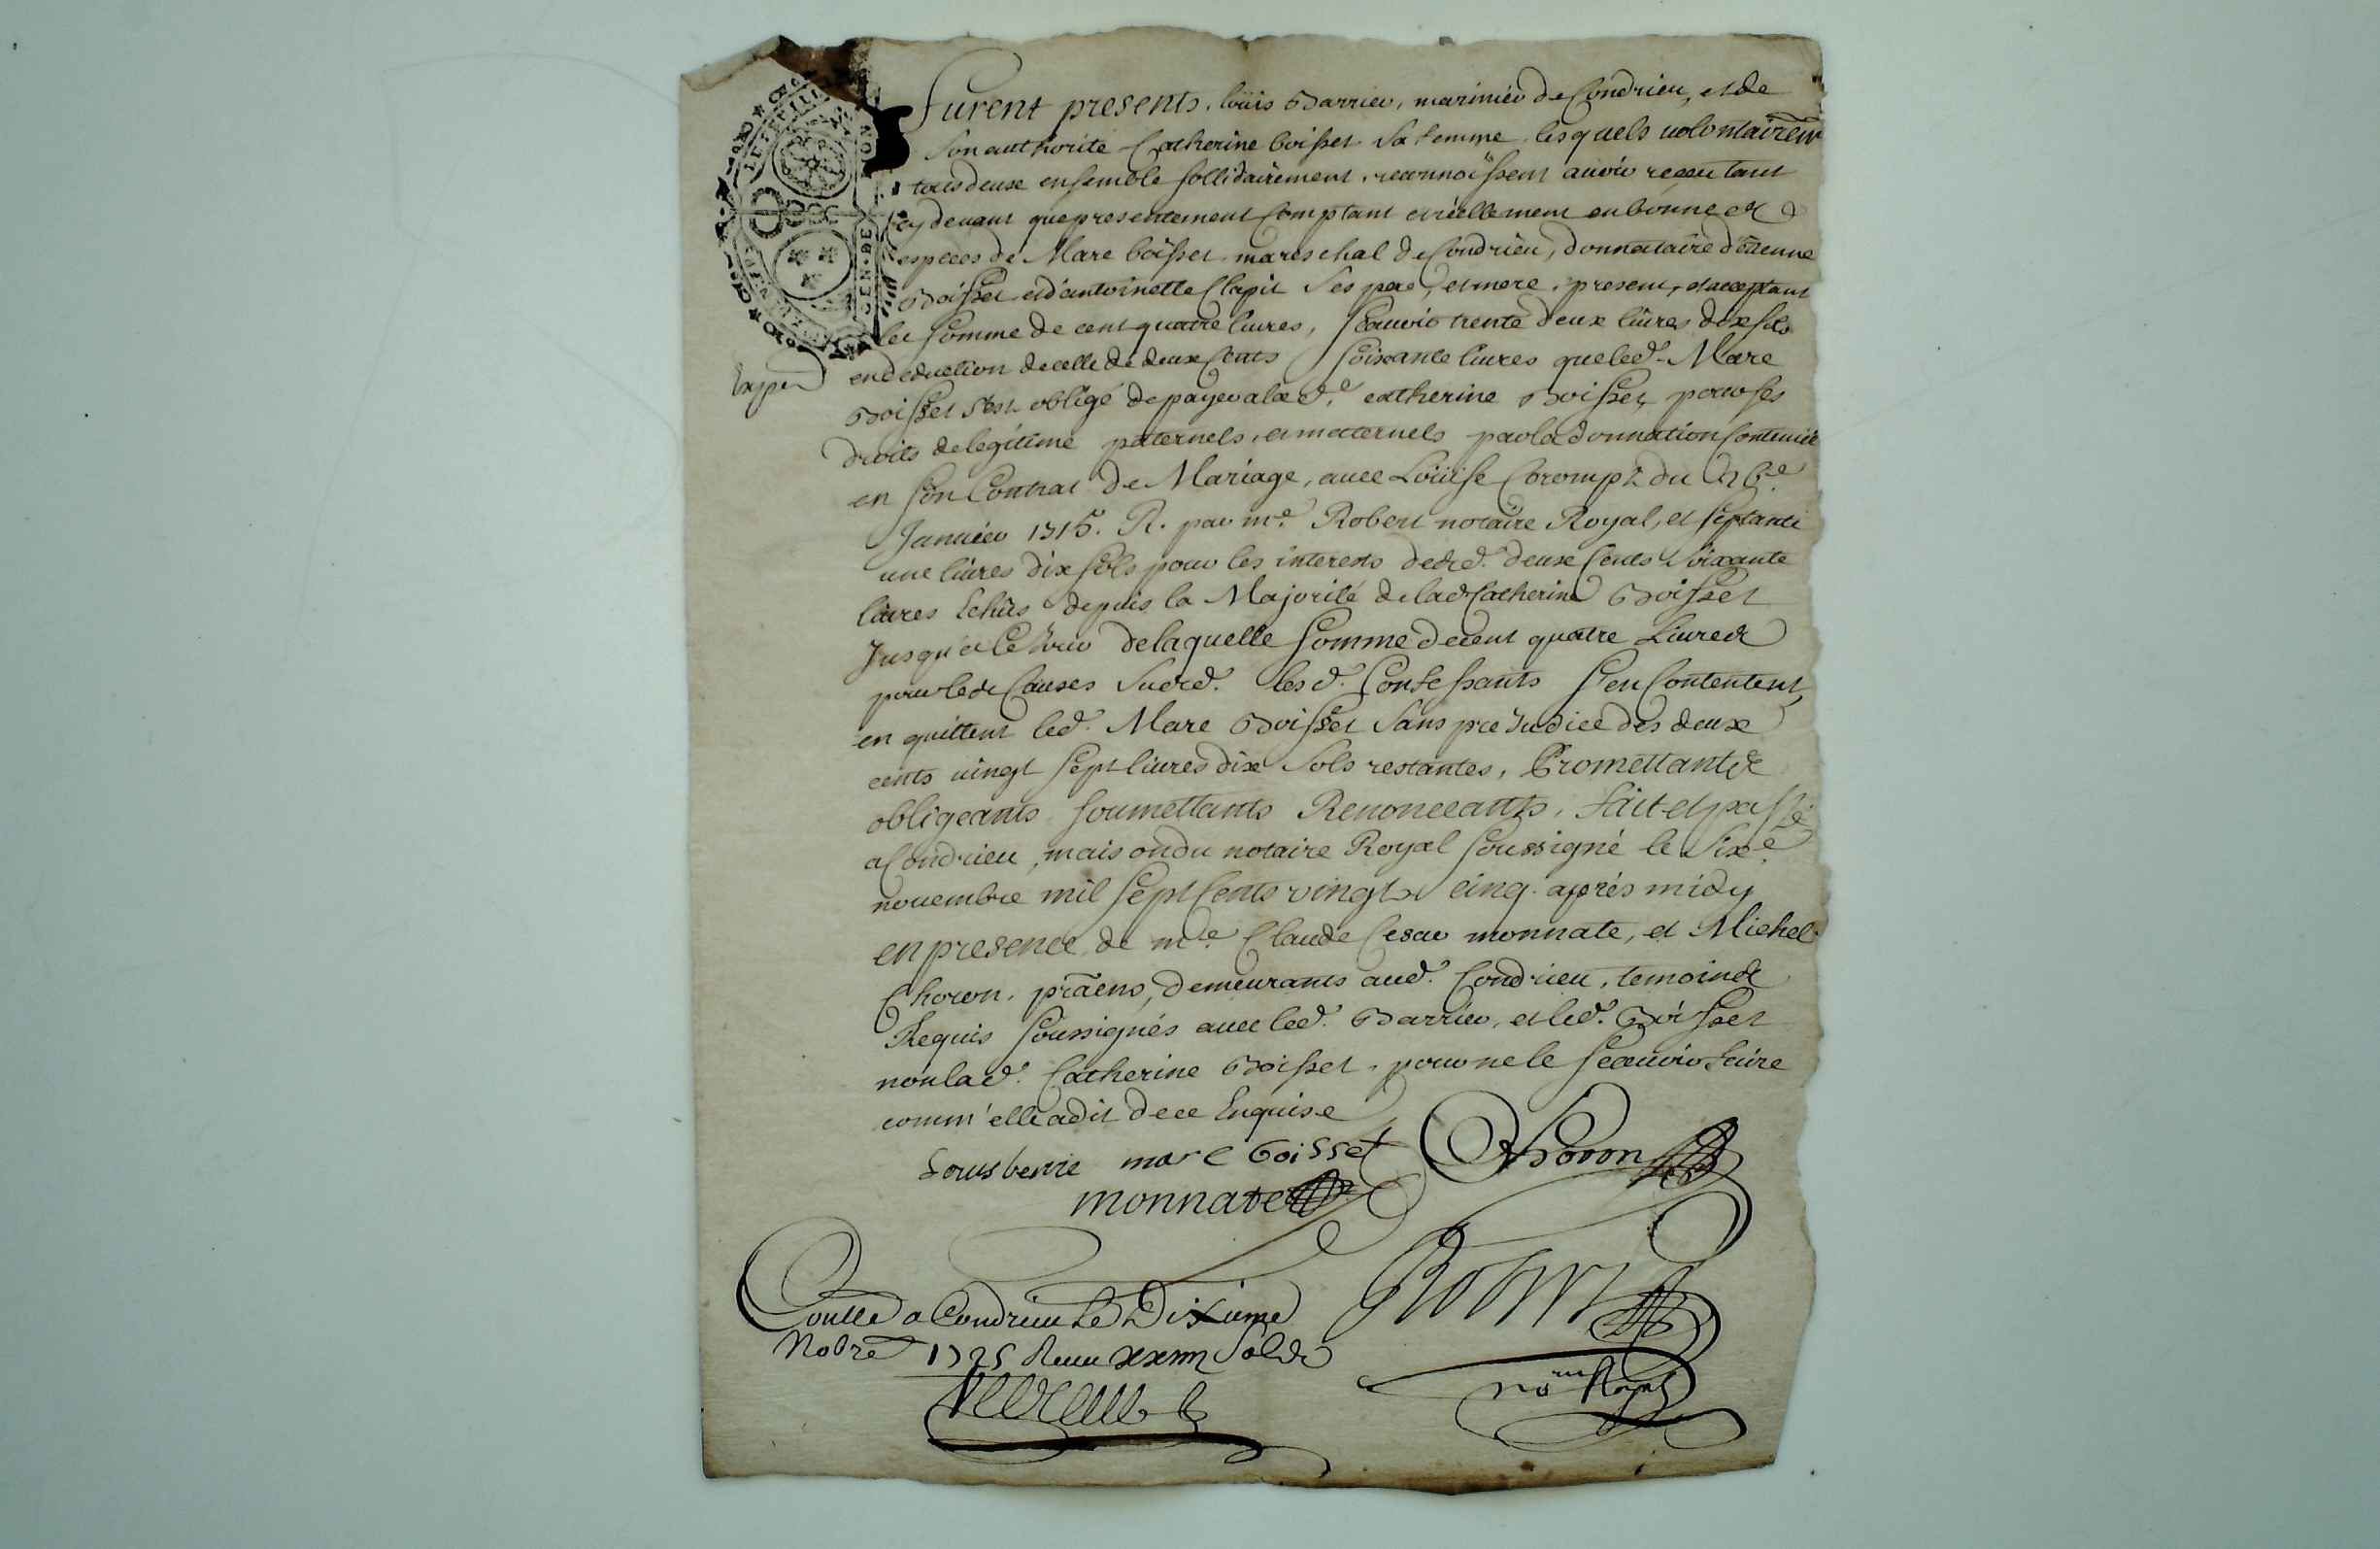 furent presents, loüis Barrier, marinier de Condrieu, et de
son authorité Catherine boisset sa femme, lesquels volontairemt
tous deux ensemble sollidairement, reconnoissent avoir reçeu tant
cy devant que presentement Comptant et réellement en bonnes
especes de Marc boisset mareschal de Condrieu, donnataire d'Etienne
Boisset et d'antoinette Clapit ses pere, et mere, present, et acceptant
la somme de cent quatre livres, sçavoir trente deux livres dix sols
en deduction de celle de deux Cents soixante livres que led. Marc
Exped
Boisset s'est obligé de payer a lad.e catherine Boisset pour ses
droits de légitime paternels, et maternels par la donnation Contenüe
en son Contrat de Mariage, avec Loüise Corompt du
Janvier 1715. R. par me. Robert notaire Royal, et septante
une livres dix sols pour les interests desd. deux Cents soixante
livres Echûs depuis la Majorité de lad Catherine Boisset
Jusqu'a Ce Jour de laquelle somme de cent quatre Livres
pour les Causes susd. les d. Confessants s'en Contentent,
en quittent led. Marc Boisset sans preJudice des deux
cents vingt sept livres dix sols restantes, Promettants
obligeants soumettants Renonceants, fait et passé
a Condrieu, maison du notaire Royal soussigné le sixe.
novembre mil sept Cents vingt cinq après midy
en presence de me. Claude Cesar monnate, et Michel
Choron, pratiens, demeurants aud. Condrieu, temoins
Requis soussignés avec led. Barrier, et led. Boisset
non lad. Catherine Boisset, pour ne le sçavoir faire
comm'elle a dit de ce Enquise
marc boisset Choron
monnate
Conllé a Condrieu le Dixieme Robert
Nobre 1725 Receu sols
nore Royal